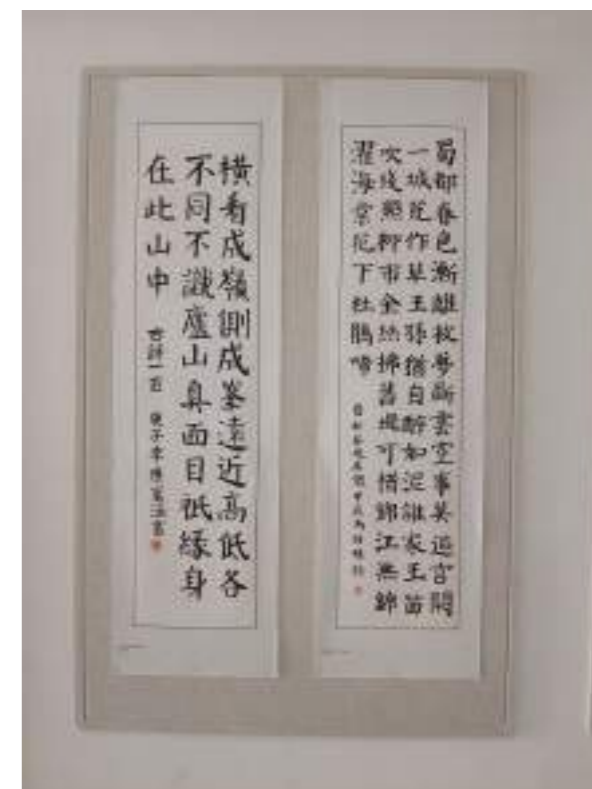 蜀都春色漸離枝夢斷雲空事莫追宮闕
一城荒作草王孫猶自醉如泥誰家玉笛
吹殘照柳市金絲拂舊堤可惜錦江無錦
濯海棠花下杜鵑啼
橫看成嶺側成峯遠近高低各
不同不識廬山真面目祇緣身
在此山中 古詩一首 庚子年陳書